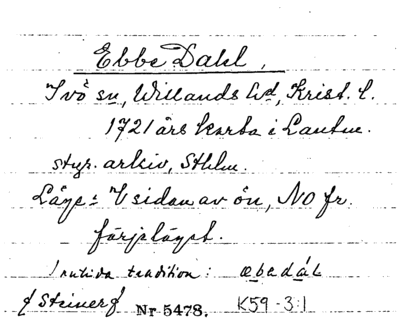 Ebbe Dahl,
Ivö sn, Willands hd, Krist. l.
1721 års karta i Lantm.
styr. arkiv, Sthlm.
Läge: V sidan av ön, NO fr.
färjeläget.
I nutida tradition: æbedál
Steiner Nr 5478. K59-3:1